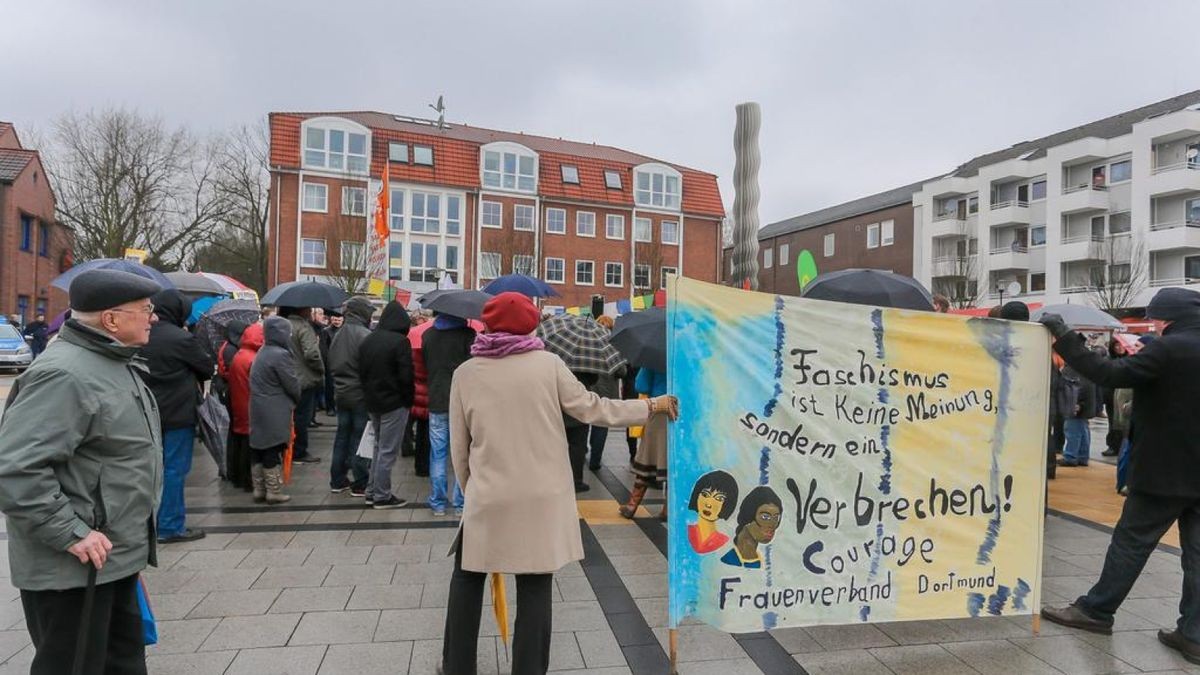 Faschismus
ist Keine Meinung,
sondern ein
Verbrechen!
Courage
Frauenverband Dortmund